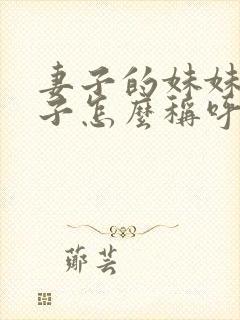 妻子的妹妹
子怎麼稱呼
鄭芸